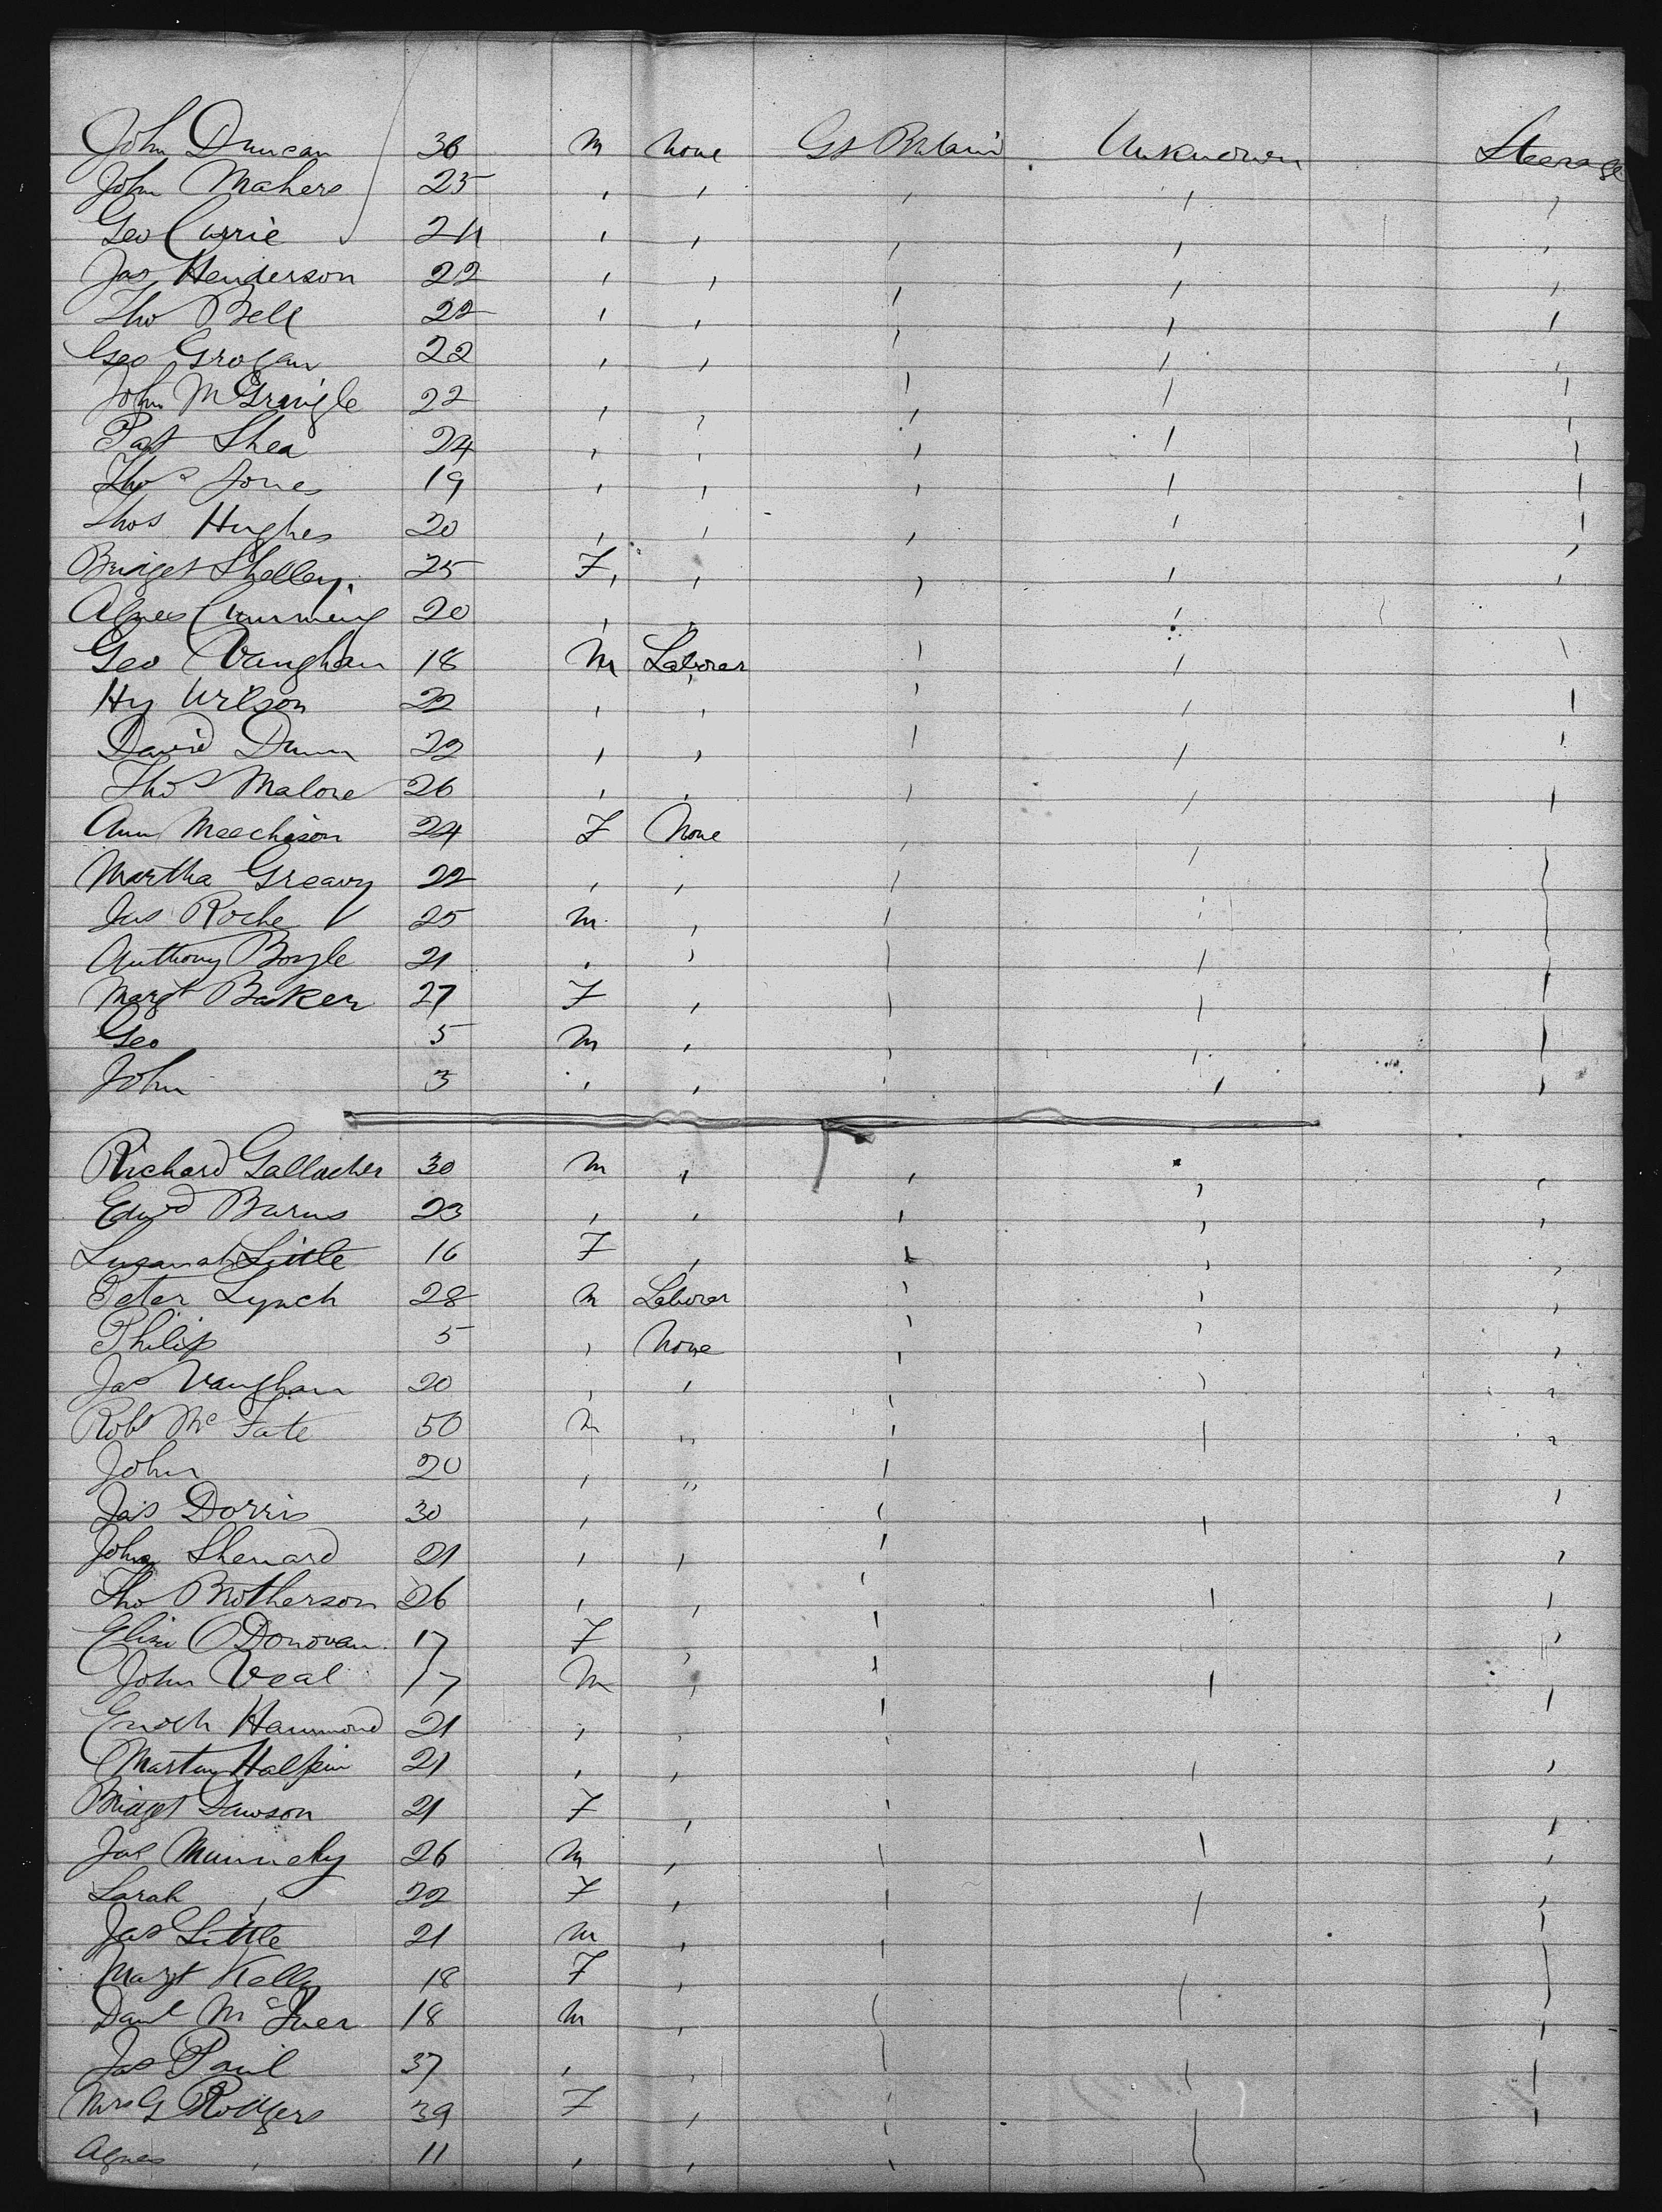 John Duncan 36 M None Gt Britain Unknown Steerage
John Mahers 25 , , , , ,
Geo Currie 24 , , , , ,
Jas Henderson 22 , , , , ,
Tho Bell 22 , , , , ,
Geo Grogan 22 , , , , ,
John McGrингle 22 , , , , ,
Pat Shea 24 , , , , ,
Thos Jones 19 , , , , ,
Thos Hughes 20 , , , , ,
Bridget Shelley 25 F , , , ,
Agnes Cumming 20 , , , ,
Geo Vaughan 18 M Laborer , , ,
Hy Wilson 22 , , , , ,
David Dunn 22 , , , , ,
Thos Malone 26 , , , , ,
Ann Meechison 24 F None , , ,
Martha Greavy 22 , , , , ,
Jas Roche 25 M , , , ,
Anthony Boyle 21 , , , , ,
Margt Baker 27 F , , , ,
Geo 5 M , , , ,
John 3 , , , , ,
Richard Gallacher 30 M , , , ,
Edwd Burns 23 , , , , ,
Susanah Little 16 F , , , ,
Peter Lynch 28 M Laborer , , ,
Philip 5 , None , , ,
Jas Vaughan 20 , , , , ,
Robt McFate 50 M ,, , , ,
John 20 , ,, ,
Jas Dorris 30 , , , ,
John Shenard 21 , , , ,
Tho Brotherson 26 , , , , ,
Eliza ODonovan 17 F , , ,
John Veal 17 M , , , ,
Enoch Hammond 21 , , ,
Martin Halpin 21 , , , ,
Bridget Dawson 21 F , , ,
Jas Munnely 26 M , , , ,
Sarah , 22 F , , , ,
Jas Little 21 M , , ,
Margt Kelly 18 F , , ,
Danl McIver 18 M , , , ,
Jas Paul 37 , , , , ,
Mrs G Rodgers 39 F , , , ,
Agnes , 11 , , , ,